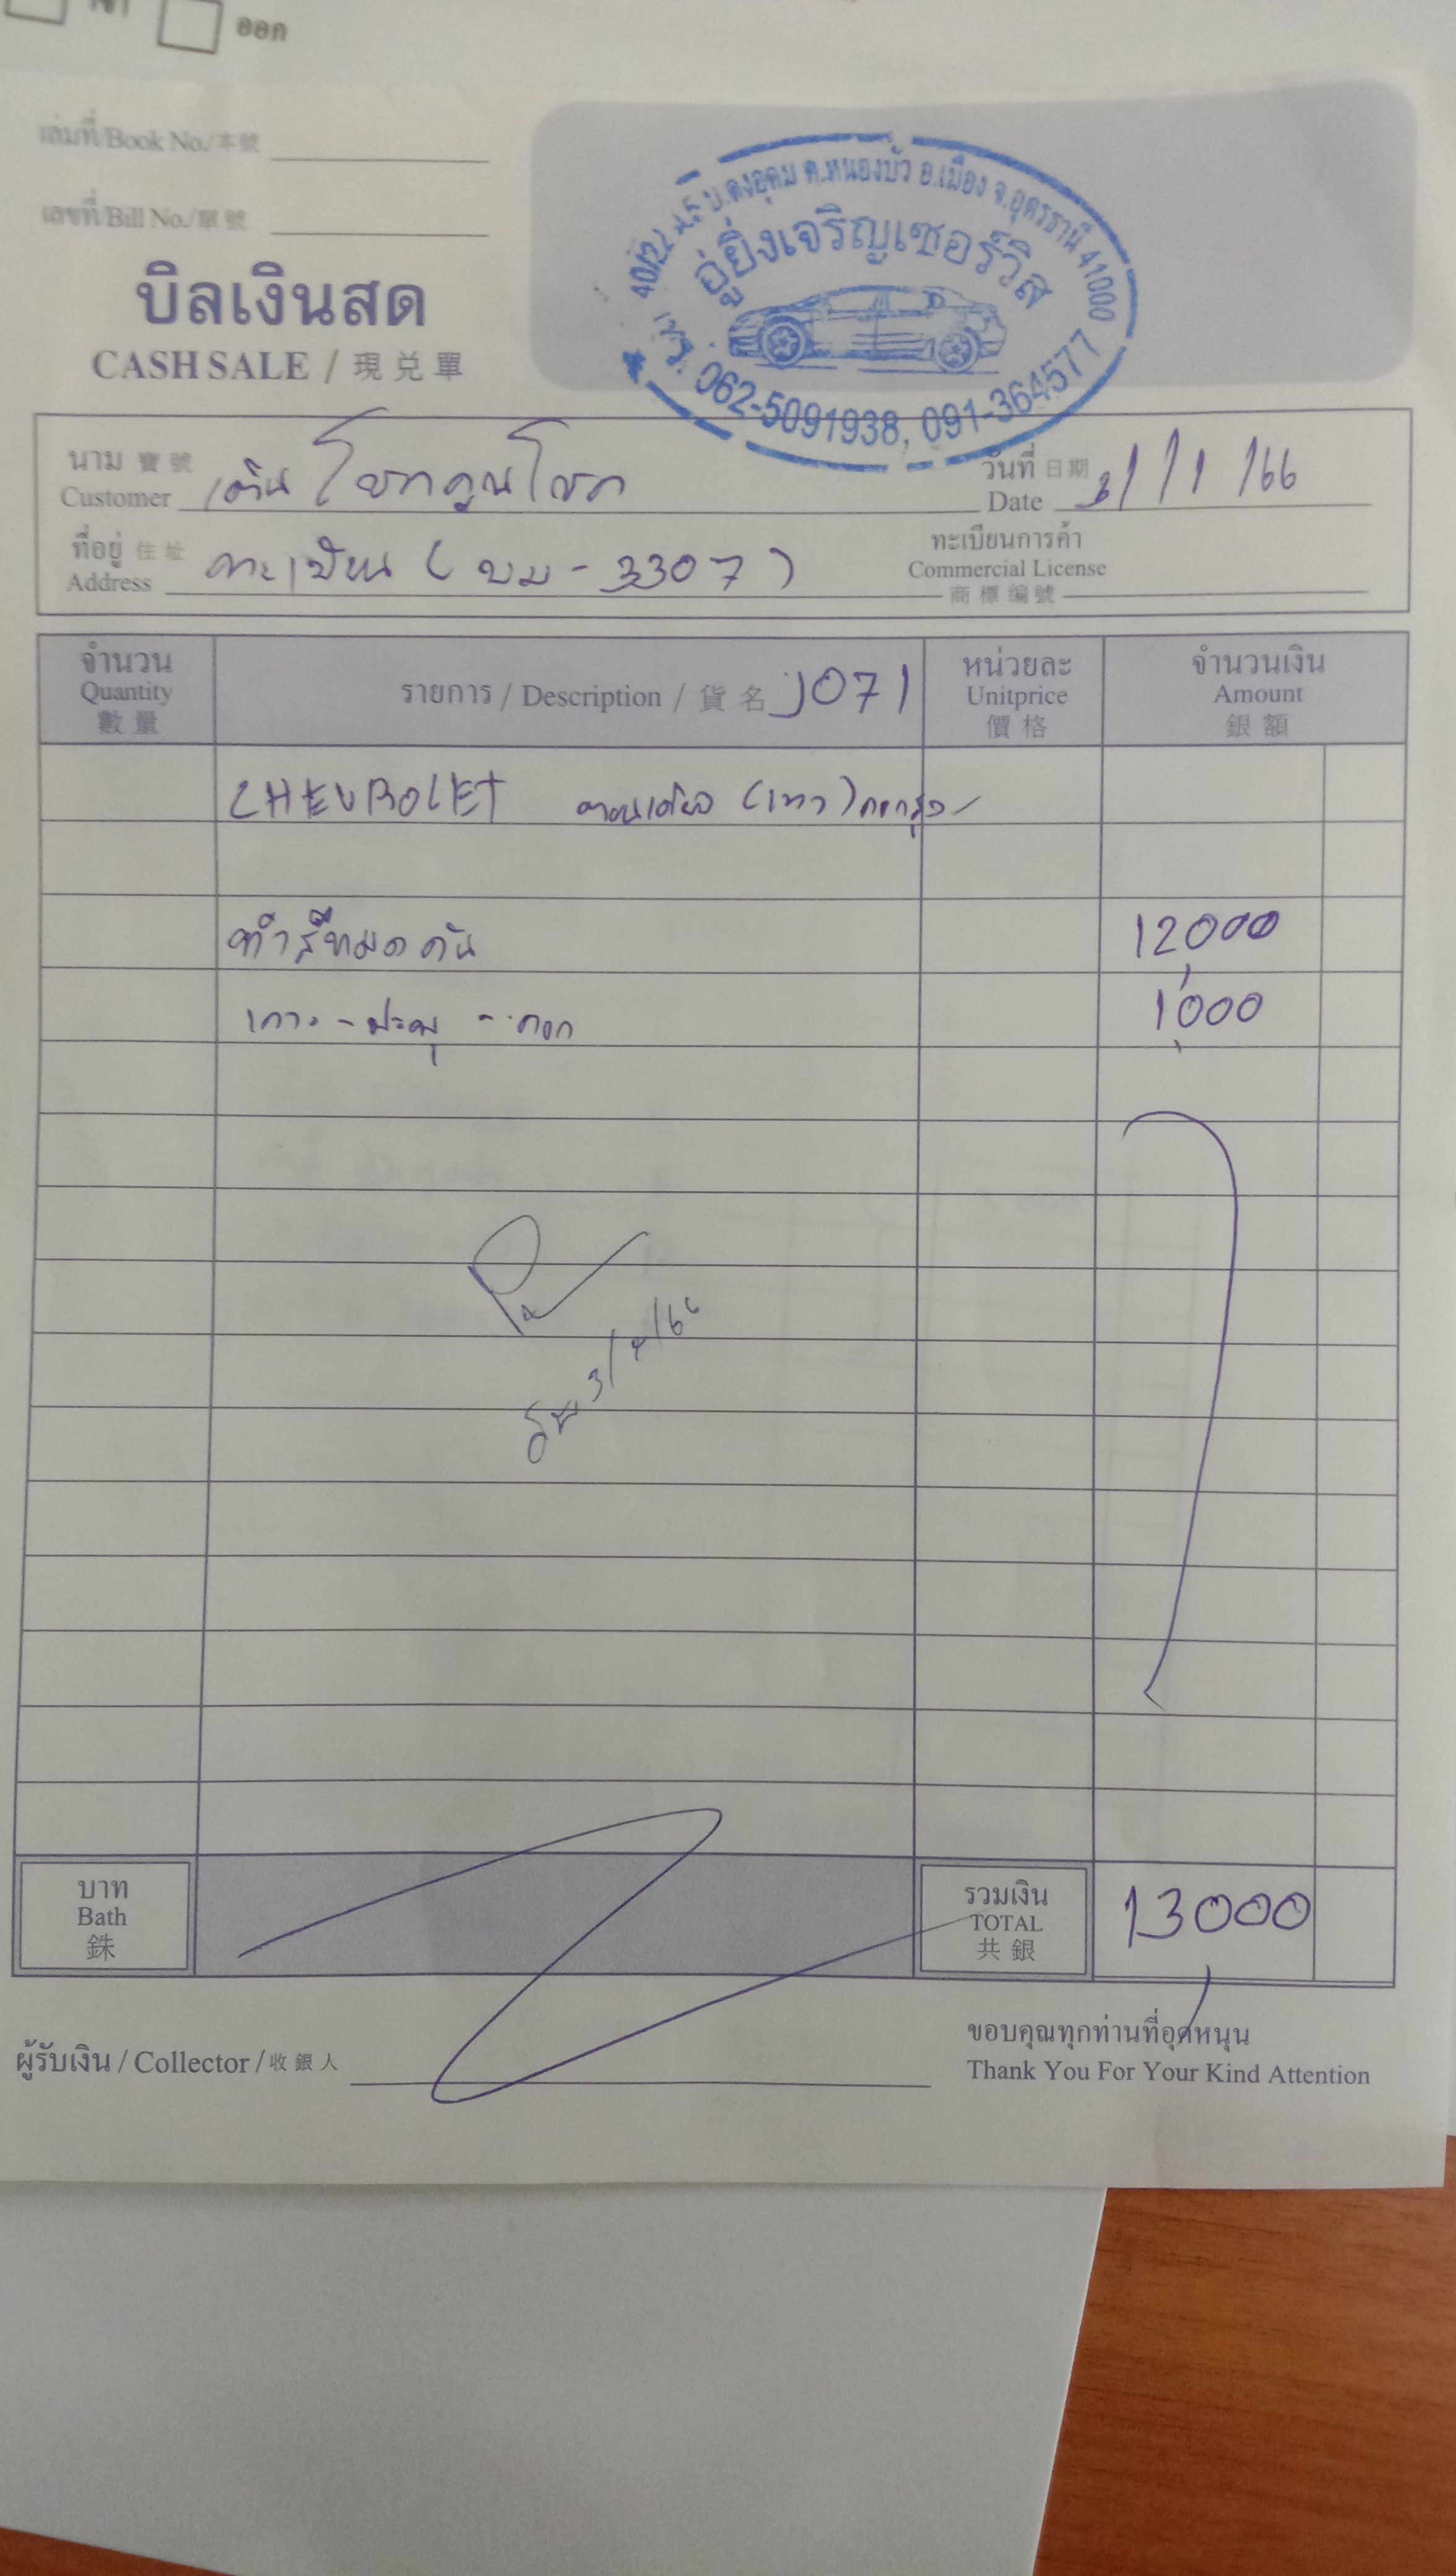 ออก
เล่มที่/Book No./本號
เลขที่/Bill No./單號
บิลเงินสด
CASH SALE / 現兑單
40/22 ม.5 บ.ดงอุดม ต.หนองบัว อ.เมือง จ.อุดรธานี 41000
อู่ยิ่งเจริญเซอร์วิส
โทร. 062-5091938, 091-364577
นาม 寶號
Customer เต็นโชคคูณโชค
วันที่ 日期
Date 3/1/66
ที่อยู่ 住址
Address ทะเบียน (บม-3307)
ทะเบียนการค้า
Commercial License
商標编號
จำนวน
Quantity
數量
รายการ / Description / 貨名 J071
หน่วยละ
Unitprice
價格
จำนวนเงิน
Amount
銀額
CHEVROLET ตอนเดียว (เทา)
ทำสีหมดคัน 12,000
เคาะ-ปะผุ - 1,000
3/4/66
บาท
Bath
銖
รวมเงิน
TOTAL
共銀
13000
ผู้รับเงิน / Collector / 收銀人
ขอบคุณทุกท่านที่อุดหนุน
Thank You For Your Kind Attention